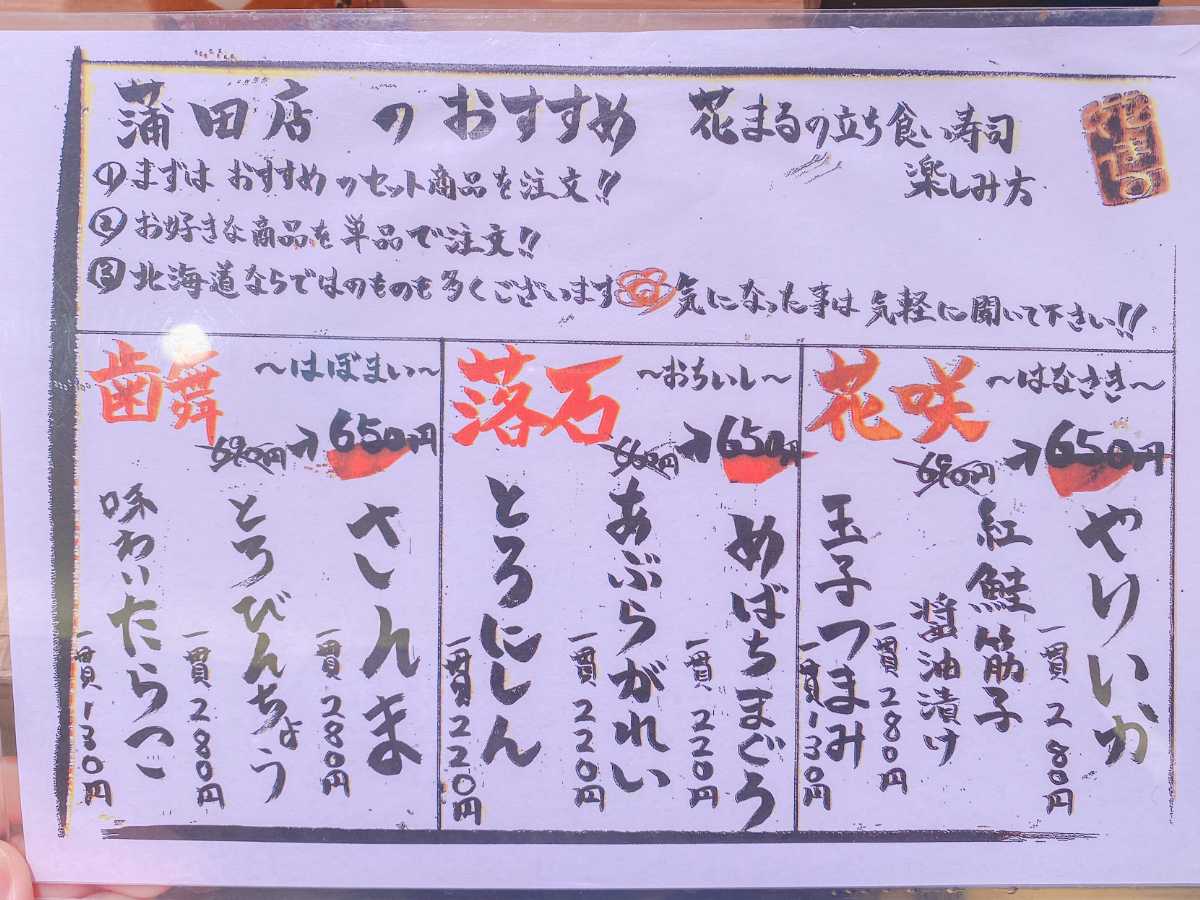 蒲田店のおすすめ 花まるの立ち食い寿司
楽しみ方
花まる
①まずはおすすめのセット商品を注文!!
②お好きな商品を単品で注文!!
③北海道ならではのものも多くございます 気になった事は気軽に聞いて下さい!!
花咲 〜はなさき〜
690円→650円
やりいか
一貫280円
紅鮭筋子
醤油漬け
一貫280円
玉子つまみ
一貫130円
落石 〜おちいし〜
660円→650円
めばちまぐろ
一貫220円
あぶらがれい
一貫220円
とろにしん
一貫220円
歯舞 〜はぼまい〜
690円→650円
さんま
一貫280円
とろびんちょう
一貫280円
味わいたらこ
一貫130円